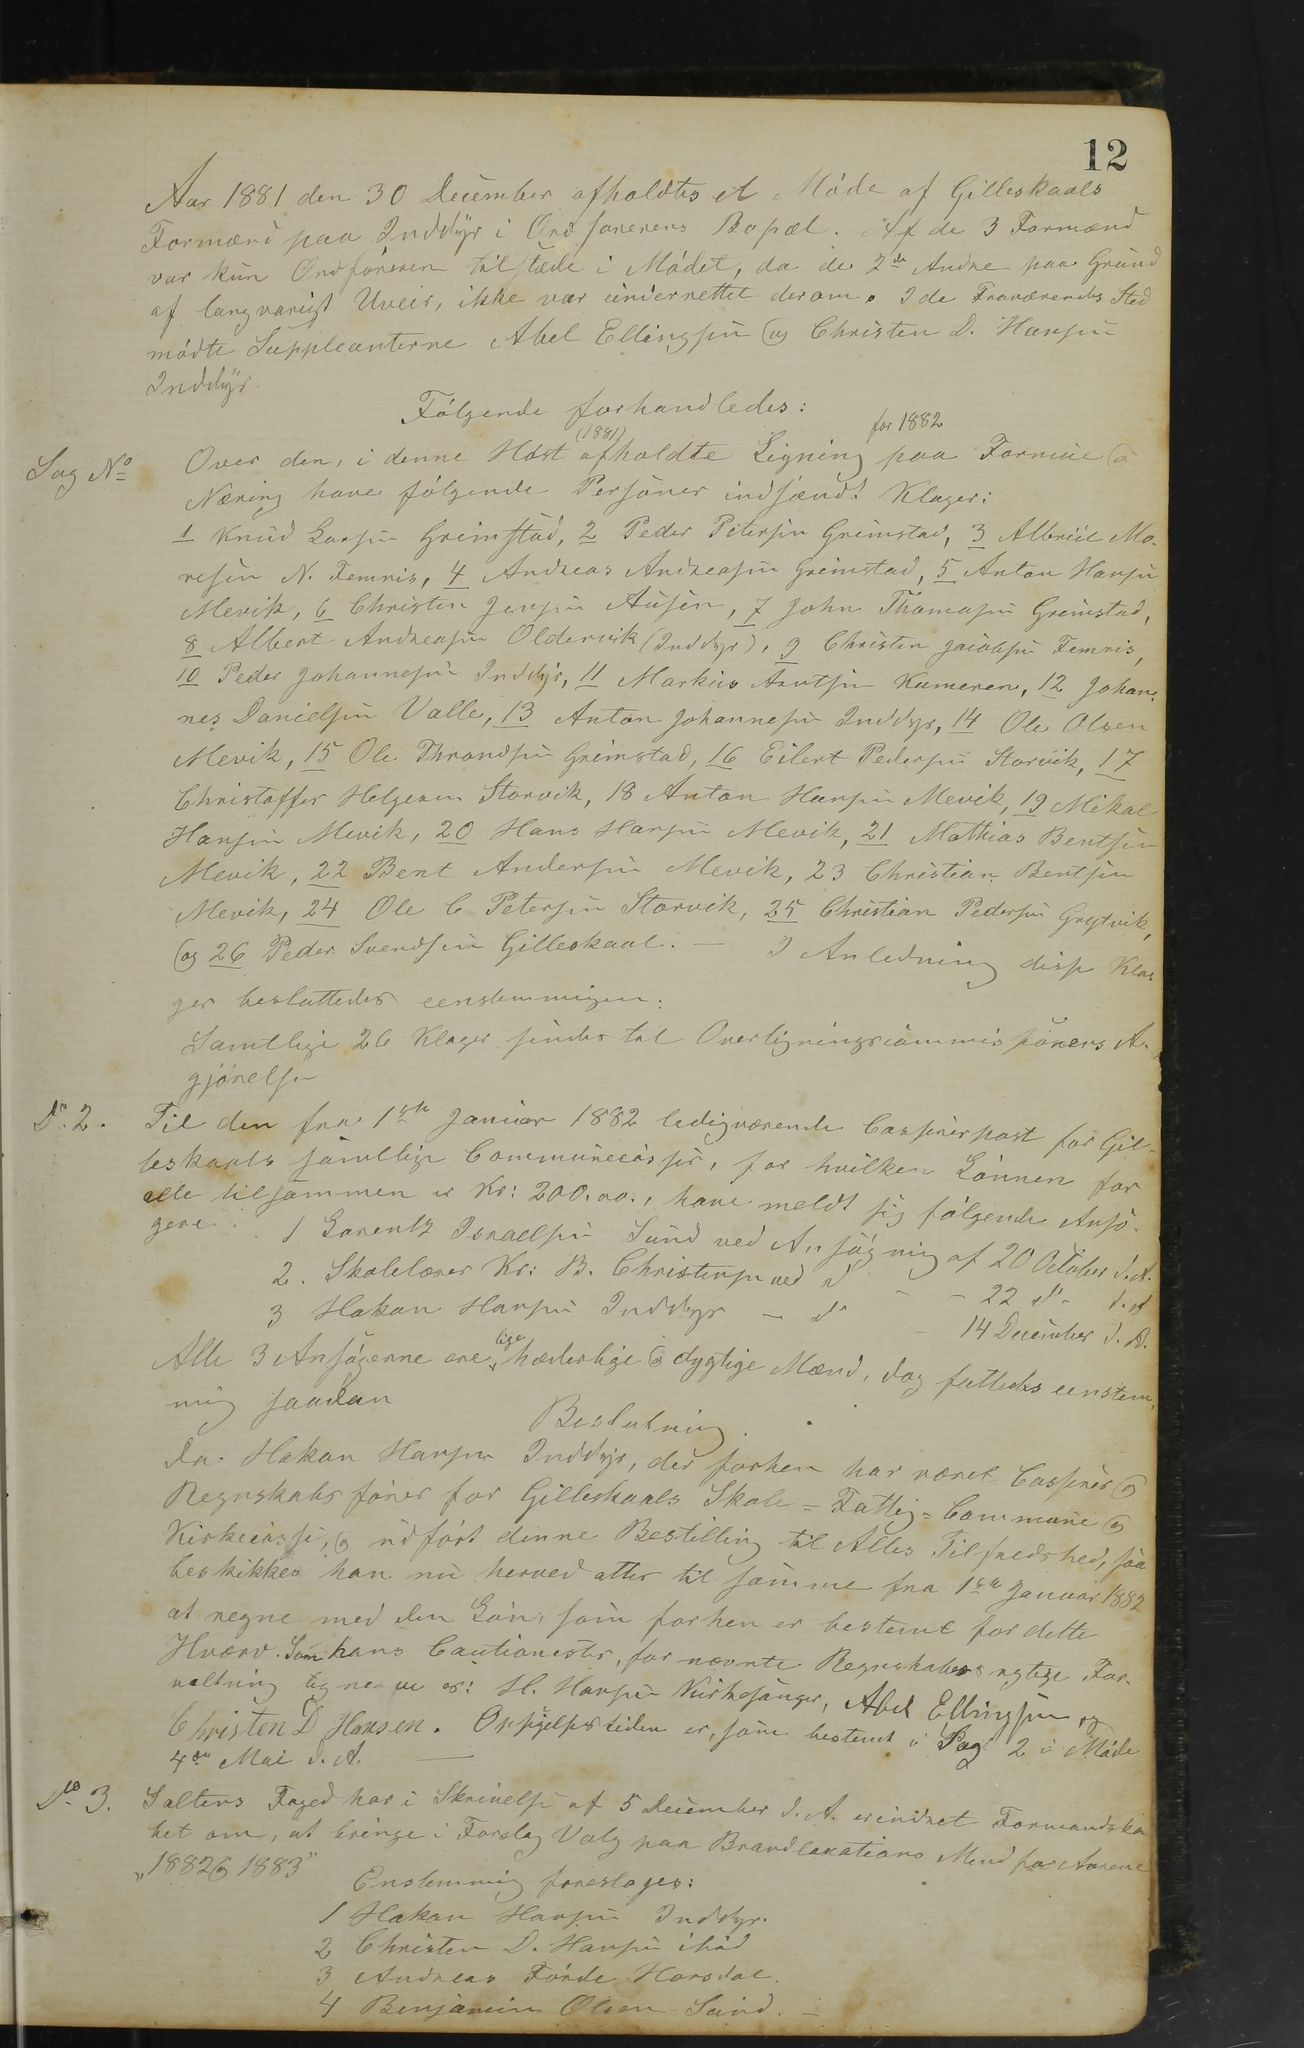 12
Aar 1881 den 30 December afholdtes et Møde af Gilleskaals
Formænd paa Inddyr i Ordførerens Bopæl. Af de 3 Formænd
var kun Ordføreren tilstæde i Mødet, da de 2de Andre paa Grund
af langvarigt Uveir, ikke var underrettet derom. I de Fraværendes Sted
mødte Suppleanterne Abel Ellingsen og Christen D. Hansen
Inddyr.
Følgende forhandledes:
(1881) for 1882
Sag No Over den, i denne Høst afholdte Ligning paa Formue og
Næring have følgende Personer indsændt Klager:
1 Knud Larsen Grimstad, 2 Peder Petersen Grimstad, 3 Albriil Mo-
resen N. Femris, 4 Andreas Andreasen Grimstad, 5 Anton Hansen
Mevik, 6 Christen Jensen Ausen, 7 John Thomasen Grimstad,
8 Albert Andreasen Oldervik (Inddyr), 9 Christen Jacobsen Femris,
10 Peder Johannesen Inddyr, 11 Markus Arntsen Kameren, 12 Johan-
nes Danielsen Valle, 13 Anton Johannesen Inddyr, 14 Ole Olsen
Mevik, 15 Ole Thrandsen Grimstad, 16 Eilert Pedersen Storvik, 17
Christoffer Helgesen Storvik, 18 Anton Hansen Mevik, 19 Mikal
Hansen Mevik, 20 Hans Hansen Mevik, 21 Mathias Bentsen
Mevik, 22 Bent Andersen Mevik, 23 Christian Bentsen
Mevik, 24 Ole C Petersen Storvik, 25 Christian Pedersen Grytvik,
og 26 Peder Svendsen Gilleskaal. — I Anledning disse Kla-
ger besluttedes eenstemmigen:
Samtlige 26 Klager sendes til Overligningscommissionens A-
gjørelse
Do 2. Til den fra 1ste Januar 1882 ledigværende Casserspost for Gil-
leskaals samtlige Communecasser, for hvilken Lønnen for
alle tilsammen er Kr: 200.00., have meldt sig følgende Ansø-
gere: 1 Lorentz Israelsen Sund ved Ansøgning af 20 October d.A.
2. Skolelærer Kr: B. Christensen ved do - - 22 do - d.A
3 Hakan Hansen Inddyr - do - 14 December d.A.
lige
Alle 3 Ansøgerne ere hæderlige og dygtige Mænd, dog fattedes eenstem-
mig saadan
Beslutning.
Da Hakan Hansen Inddyr, der forhen har været Casserer og
Regnskabsfører for Gilleskaals Skole = Fattig = Commune og
Kirkecasse, og udført denne Bestilling til Alles Tilfredshed, saa
beskikkes han nu herved atter til samme fra 1ste Januar 1882
at regne med den Løn, som forhen er bestemt for dette
Hværv. Som hans Cautionister, for nævnte Regnskabers rigtige For-
valtning tegne vi os: H. Hansen Kirkesanger, Abel Ellingsen og
Christen D Hansen. Opsigelsestiden er, som bestemt i Sag 2 i Møde
4de Mai d.A. —
Do 3. Saltens Foged har i Skrivelse af 5 December d.A. erindret Formandska-
bet om, at bringe i Forslag Valg paa Brandtaxations Mænd for Aarene
"1882 og 1883"
Enstemmig foreslages:
1 Hakan Hansen Inddyr.
2 Christen D. Hansen ibid
3 Andreas Førde Horsdal.
4 Benjamin Olsen Sund. —